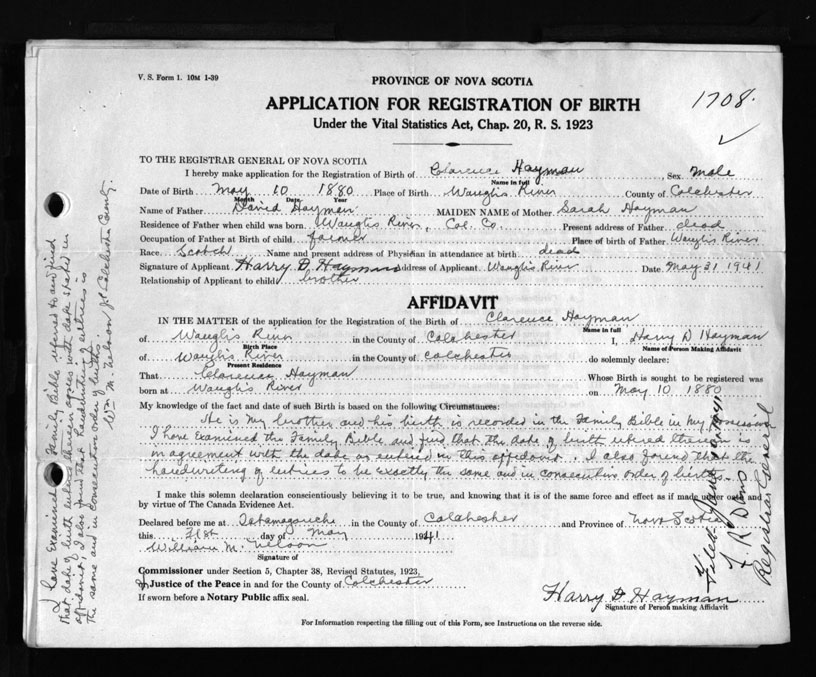 V. S. Form 1. 10M 1-39
1708.
PROVINCE OF NOVA SCOTIA
APPLICATION FOR REGISTRATION OF BIRTH
Under the Vital Statistics Act, Chap. 20, R. S. 1923
TO THE REGISTRAR GENERAL OF NOVA SCOTIA
I hereby make application for the Registration of Birth of Clarence Hayman Sex male
Name in full
Date of Birth May 10 1880 Place of Birth Waugh's River County of Colchester
Month Date Year
Name of Father David Hayman MAIDEN NAME of Mother Sarah Hayman
Residence of Father when child was born Waugh's River, Col. Co. Present address of Father dead
Occupation of Father at Birth of child farmer Place of birth of Father Waugh's River
Race Scotch Name and present address of Physician in attendance at birth dead
Signature of Applicant Harry D. Hayman Address of Applicant Waugh's River Date May 31 1941
Relationship of Applicant to child brother
AFFIDAVIT
IN THE MATTER of the application for the Registration of the Birth of Clarence Hayman
Name in full
of Waugh's River in the County of Colchester I, Harry D Hayman
Birth Place Name of Person Making Affidavit
of Waugh's River in the County of Colchester do solemnly declare:
Present Residence
That Clarence Hayman Whose Birth is sought to be registered was
born at Waugh's River on May 10 1880
My knowledge of the fact and date of such Birth is based on the following Circumstances:
He is my brother and his birth is recorded in the Family Bible in my possession
I have examined the Family Bible and find that the date of birth entered therein is
in agreement with the date as entered in this affidavit. I also found that the
handwriting of entries to be exactly the same and in consecutive order of births.
I make this solemn declaration conscientiously believing it to be true, and knowing that it is of the same force and effect as if made under oath and
by virtue of The Canada Evidence Act.
Declared before me at Tatamagouche in the County of Colchester and Province of Nova Scotia
this 31st day of May 1941
William M. Nelson
Signature of
Commissioner under Section 5, Chapter 38, Revised Statutes, 1923,
Justice of the Peace in and for the County of Colchester
If sworn before a Notary Public affix seal.
Harry D Hayman
Signature of Person making Affidavit
For Information respecting the filling out of this Form, see Instructions on the reverse side.
I have Examined Family Bible referred to and find
that date of birth entered therein agrees with date stated in
affidavit. I also find that handwriting of entries is
the same and in consecutive order of births
Wm. M. Nelson JP Colchester County.
Registrar General